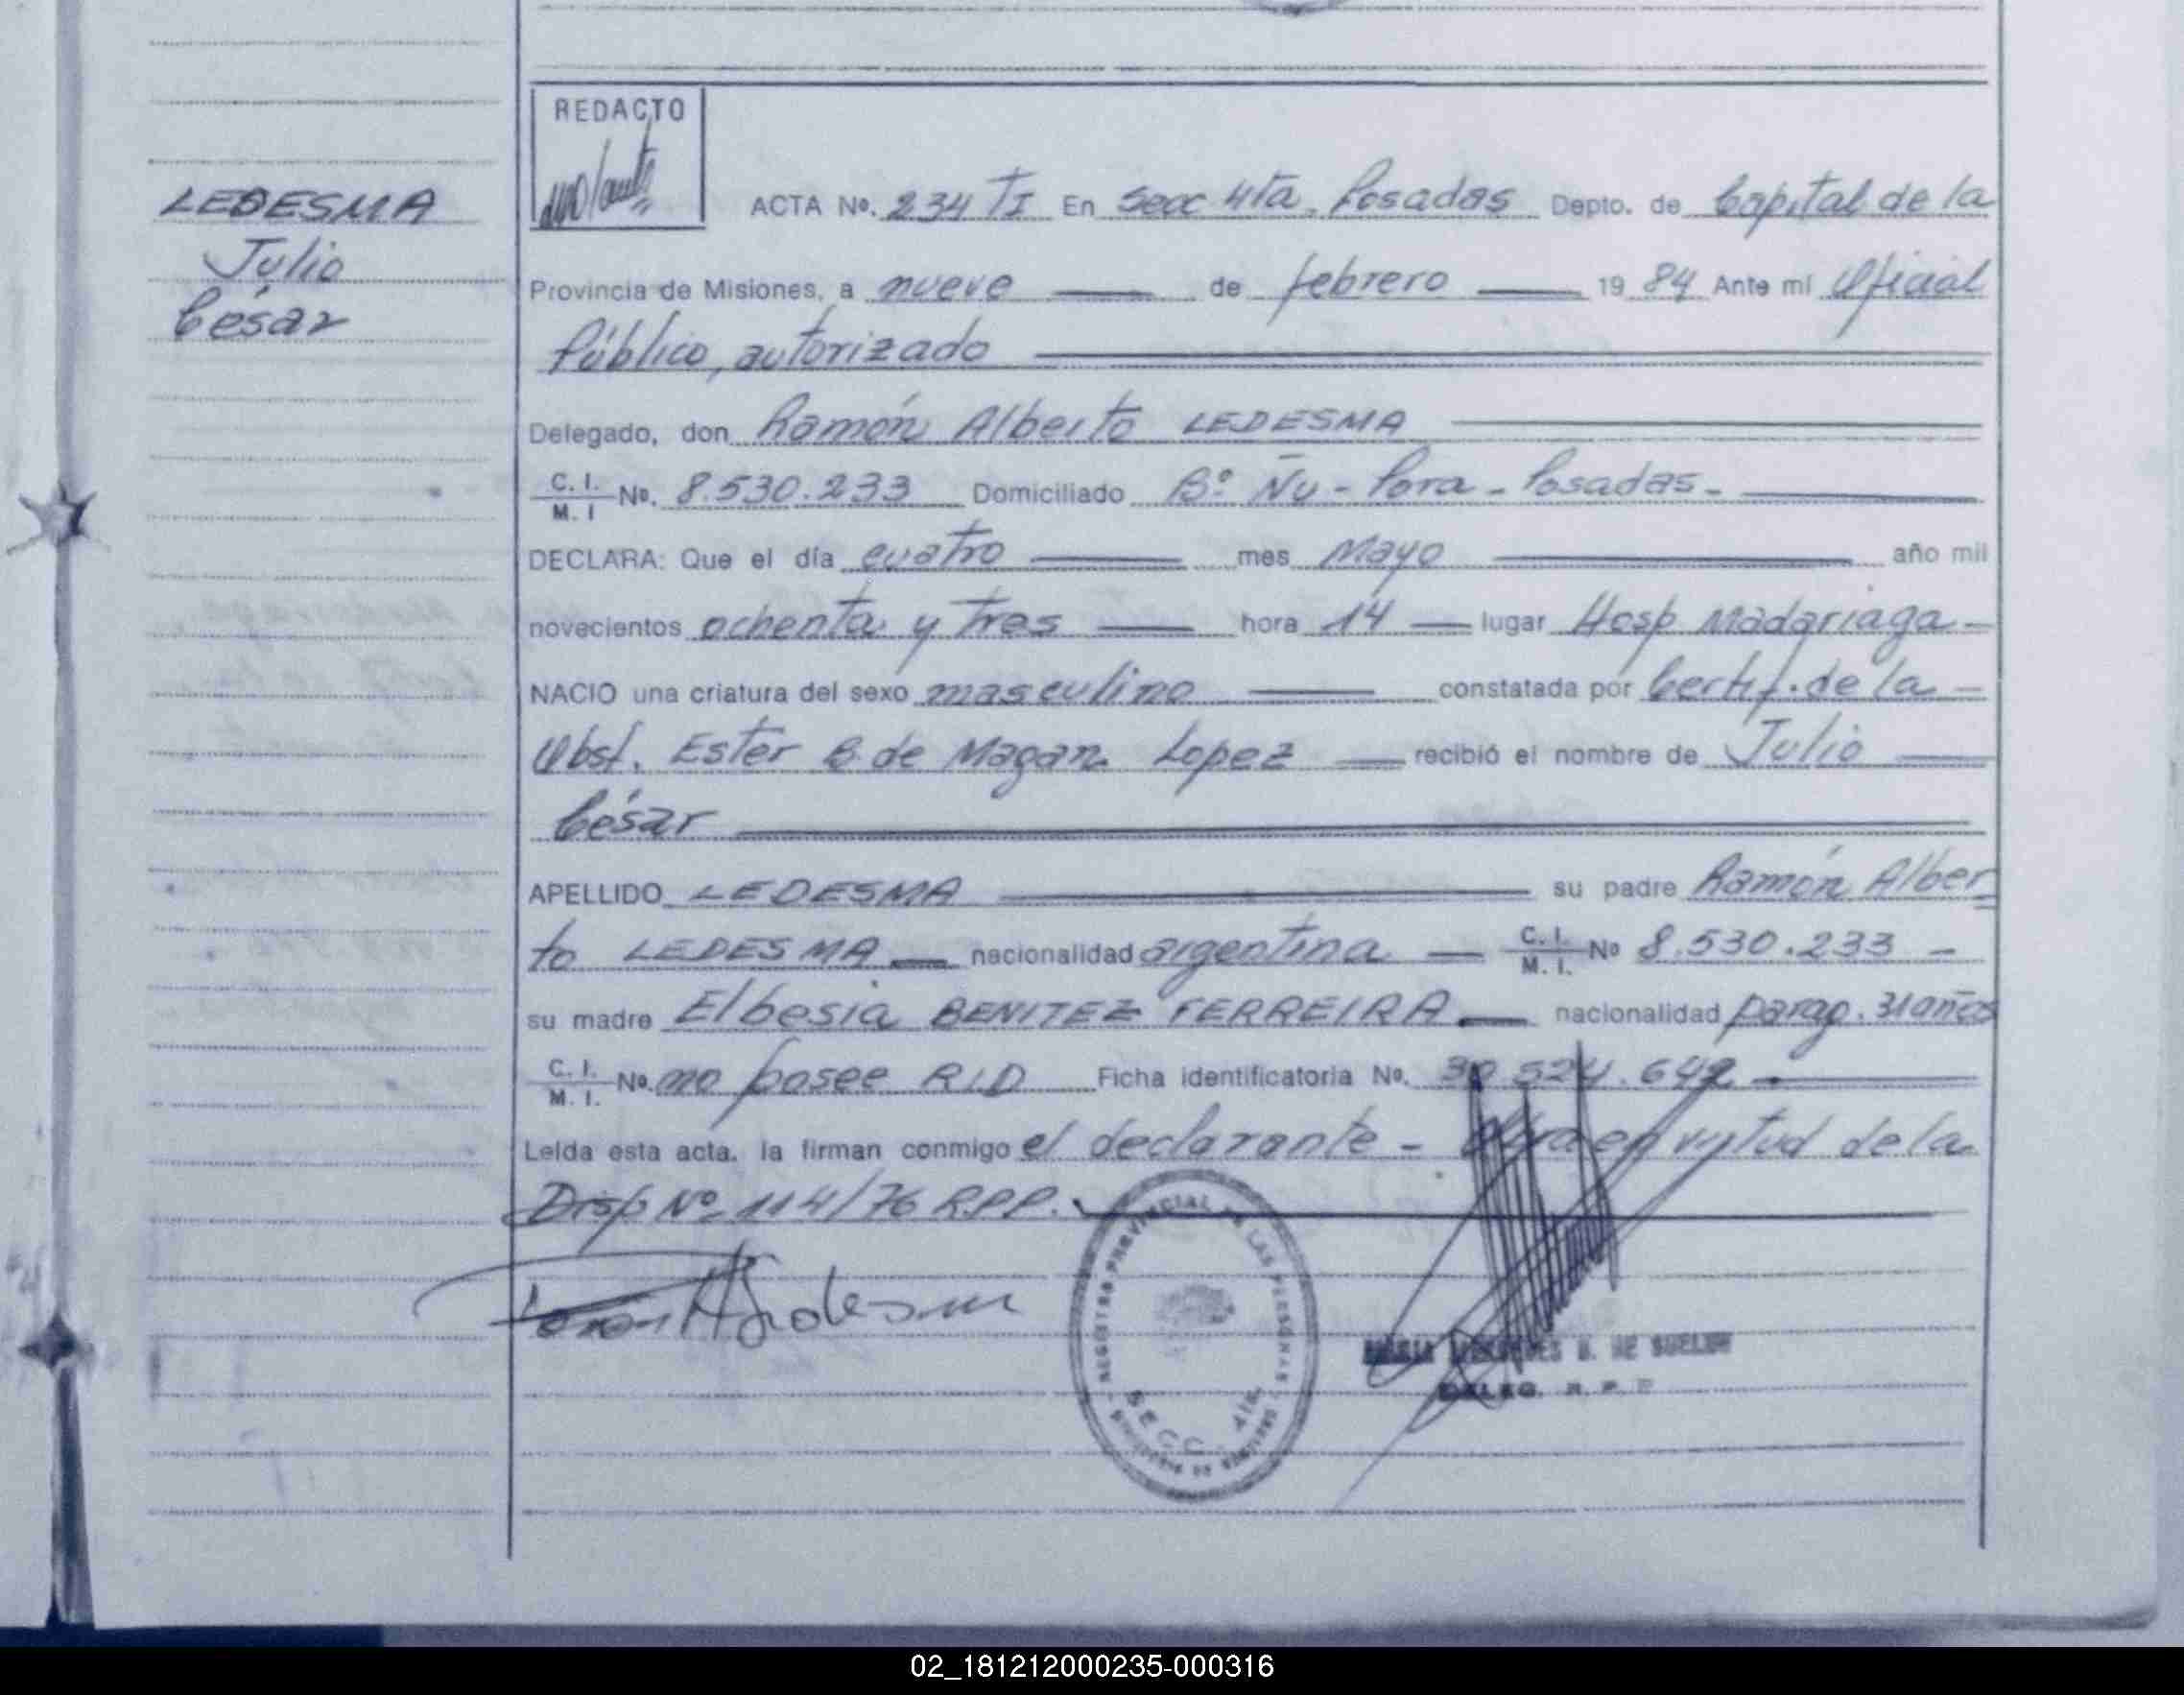 REDACTO
LEDESMA
Julio
César
ACTA Nº. 234 TI En Secc 4ta. Posadas Depto. de Capital de la
Provincia de Misiones, a nueve de febrero 19 84 Ante mi Oficial
Público, autorizado
Delegado, don Ramón Alberto LEDESMA
C. I. M. I Nº. 8.530.233 Domiciliado Bº Ñu - Pora - Posadas -
DECLARA: Que el día cuatro mes Mayo año mil
novecientos ochenta y tres hora 14 lugar Hosp Madariaga -
NACIO una criatura del sexo masculino constatada por Certif. de la -
Obst. Ester B. de Lopez recibió el nombre de Julio
César
APELLIDO LEDESMA su padre Ramón Alber
to LEDESMA nacionalidad argentina C. I. M. I. Nº 8.530.233 -
su madre Elbesia BENITEZ FERREIRA nacionalidad parag. 31 años
C. I. M. I. Nº. no posee R.I.D Ficha identificatoria Nº. 30.524.642
Leída esta acta, la firman conmigo el declarante - en virtud de la
Disp Nº 114/76 R.P.P.
REGISTRO PROVINCIAL DE LAS PERSONAS
SECC. 4ta.
DELEG. R. P. P
02_181212000235-000316